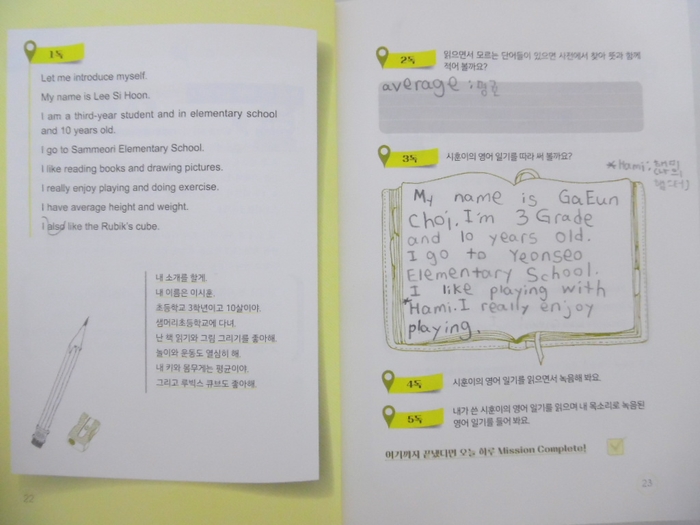 1독
Let me introduce myself.
My name is Lee Si Hoon.
I am a third-year student and in elementary school
and 10 years old.
I go to Sammeori Elementary School.
I like reading books and drawing pictures.
I really enjoy playing and doing exercise.
I have average height and weight.
I also like the Rubik's cube.
내 소개를 할게.
내 이름은 이시훈.
초등학교 3학년이고 10살이야.
샘머리초등학교에 다녀.
난 책 읽기와 그림 그리기를 좋아해.
놀이와 운동도 열심히 해.
내 키와 몸무게는 평균이야.
그리고 루빅스 큐브도 좋아해.
22
2독
읽으면서 모르는 단어들이 있으면 사전에서 찾아 뜻과 함께
적어 볼까요?
average : 평균
3독
시훈이의 영어 일기를 따라 써 볼까요?
*Hami: 해미
나의
햄스터
My name is GaEun
Choi. I'm 3 Grade
and 10 years old.
I go to Yeonseo
Elementary School.
I like playing with
*Hami. I really enjoy
playing.
4독
시훈이의 영어 일기를 읽으면서 녹음해 봐요.
5독
내가 쓴 시훈이의 영어 일기를 읽으며 내 목소리로 녹음된
영어 일기를 들어 봐요.
여기까지 끝냈다면 오늘 하루 Mission Complete!
23